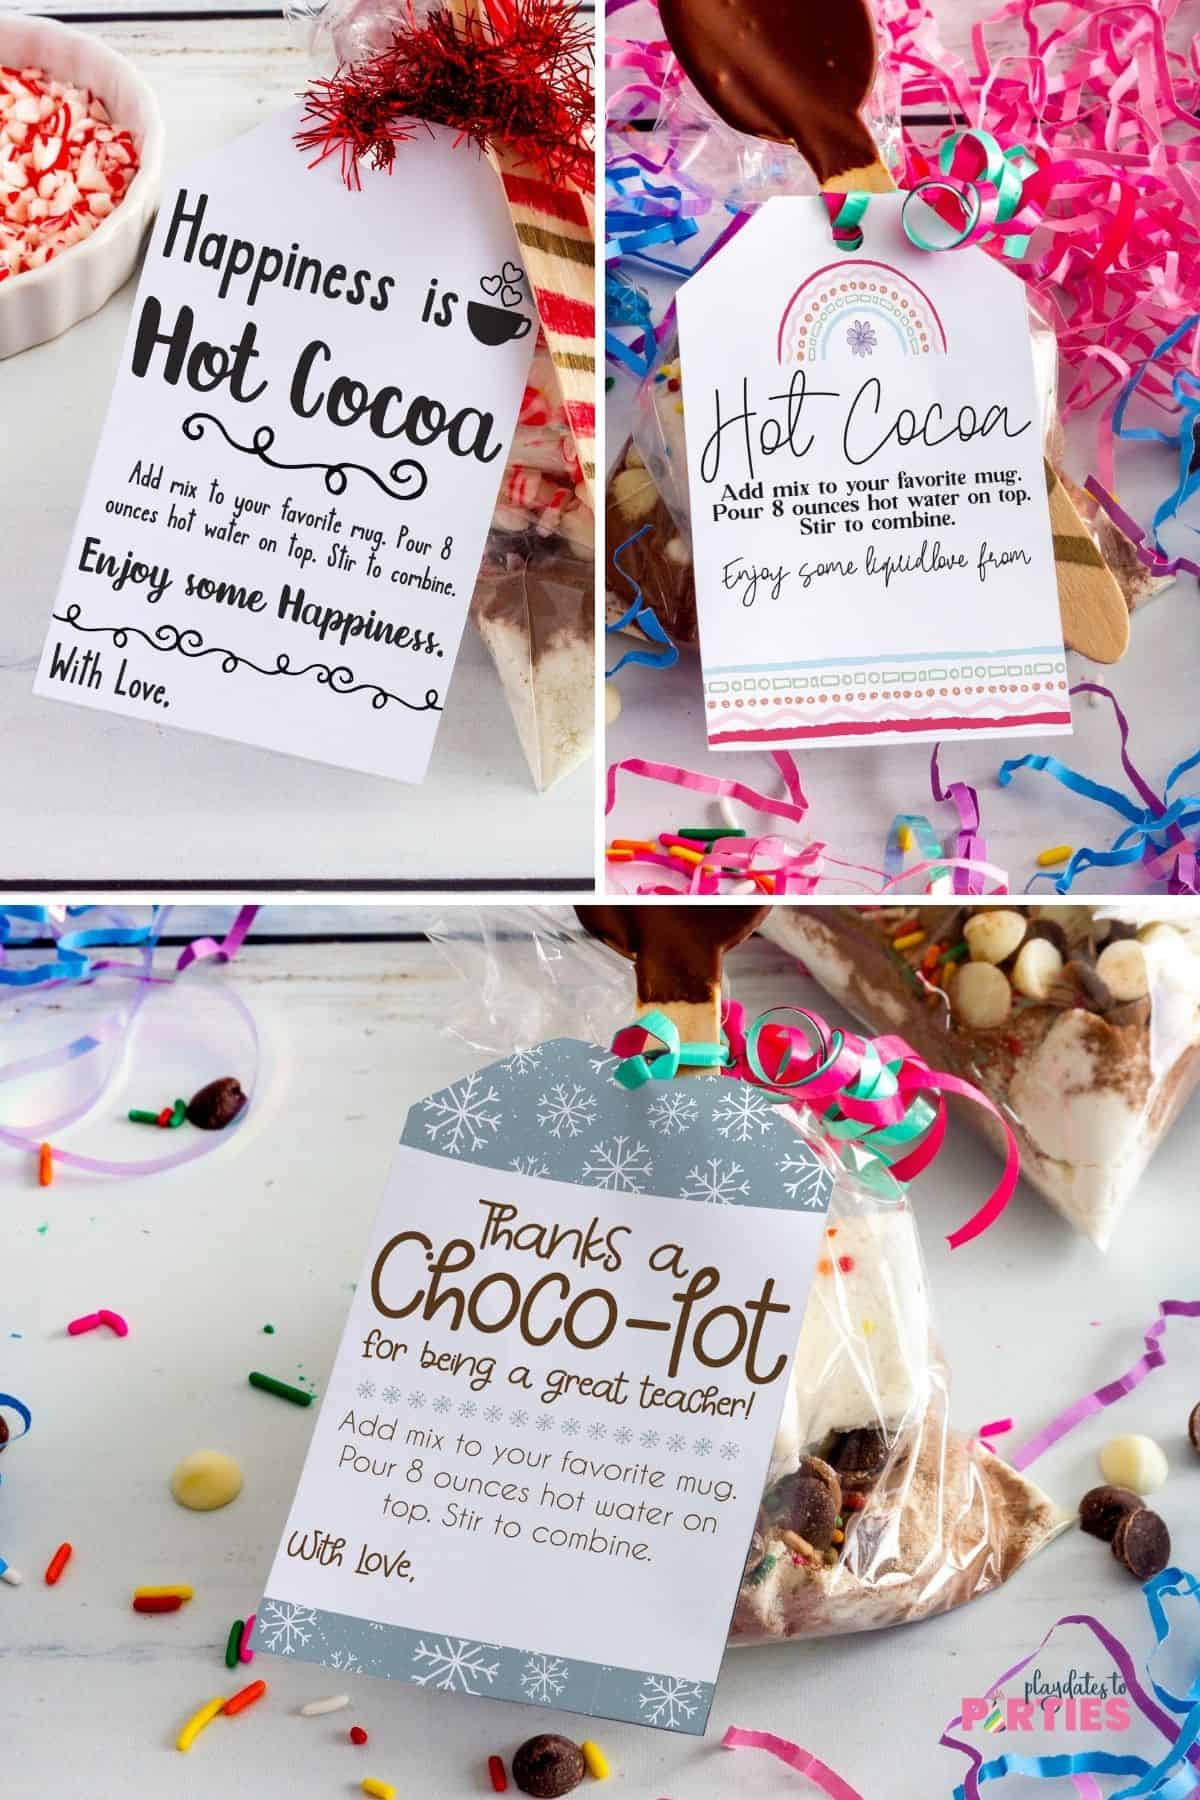 Happiness is
Hot Cocoa
Add mix to your favorite mug. Pour 8
ounces hot water on top. Stir to combine.
Enjoy some Happiness.
With Love,
Hot Cocoa
Add mix to your favorite mug.
Pour 8 ounces hot water on top.
Stir to combine.
Enjoy some liquidlove from
Thanks a
Choco-lot
for being a great teacher!
Add mix to your favorite mug.
Pour 8 ounces hot water on
top. Stir to combine.
With Love,
playdates to
PARTIES